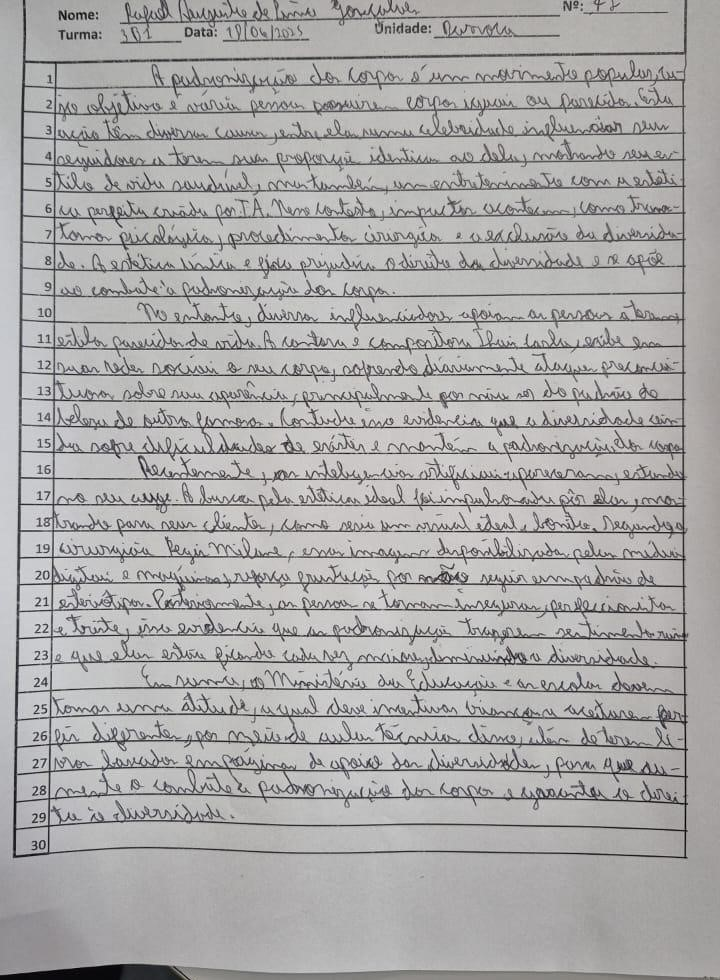 Nome: Rafael Augusto de Lima Gonçalves Nº: 42
Turma: 3B1 Data: 18/06/2025 Unidade:
1 A padronização dos corpos é um movimento popular, cu-
2 jo objetivo é várias pessoas possuirem corpos iguais ou parecidos. Esta
3 ação têm diversas causas, entre elas numa celebridade influenciar seus
4 seguidores a terem suas proporções identicas ao delas, mostrando seu es
5 tilo de vida saudável, mas também, um entretenimento com a estéti-
6 ca perfeita criada por IA. Nesse contexto, impactos acontecem, como trans-
7 tornos psicológicos, procedimentos cirurgicos e a exclusão da diversida-
8 de. A estética única e fixa prejudica o direito da diversidade e se opõe
9 ao combate à padronização dos corpos.
10 No entanto, diversos influenciadores apoiam as pessoas a terem
11 estilos parecidos de vida. A cantora e compositora Thais Carla, exibe em
12 suas redes sociais o seu corpo, sofrendo diariamente ataques preconcei-
13 tuosos sobre sua aparência, principalmente por não ser do padrão de
14 beleza de outros famosos. Contudo isso evidencia que a diversidade ain-
15 da sofre dificuldades de existir e mantém a padronização dos corpos
16 Recentemente, as inteligencias artificiais apareceram, estando
17 no seu auge. A busca pela estética ideal foi impulsonada por elas, mos-
18 trando para seus clientes, como seria um visual ideal, bonito. Segundo a
19 cirurgiã Regia Milane, essas imagens disponibilizadas pelas mídias
20 digitais e maquinas, reforça frustação por não seguir um padrão de
21 esteriótipos. Posteriormente, as pessoas se tornam inseguras, perfeccionistas
22 e triste, isso evidencia que as padronização trazem sentimentos ruins
23 e que elas estão ficando cada vez maiores, diminuindo a diversidade.
24 Em suma, o Ministério da Educação e as escolas devem
25 tomar uma atitude, a qual deve incentivar crianças a aceitarem per
26 fis diferentes, por meio de aulas técnicas disso, além de terem li-
27 vros baseados em páginas de apoio das diversidades, para que au-
28 mente o combate à padronização dos corpos e garantes o direi-
29 to à diversidade.
30